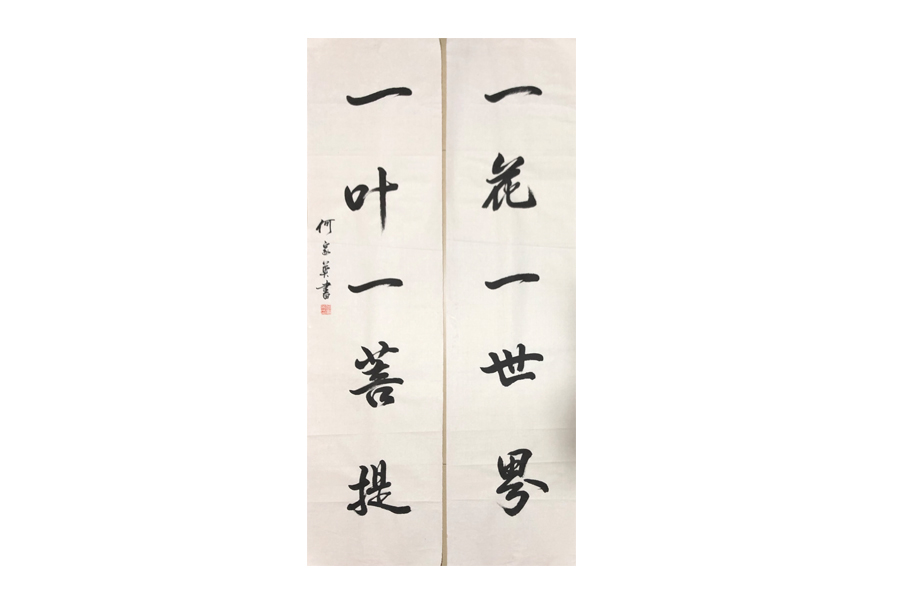 一花一世界
一叶一菩提
何家英書